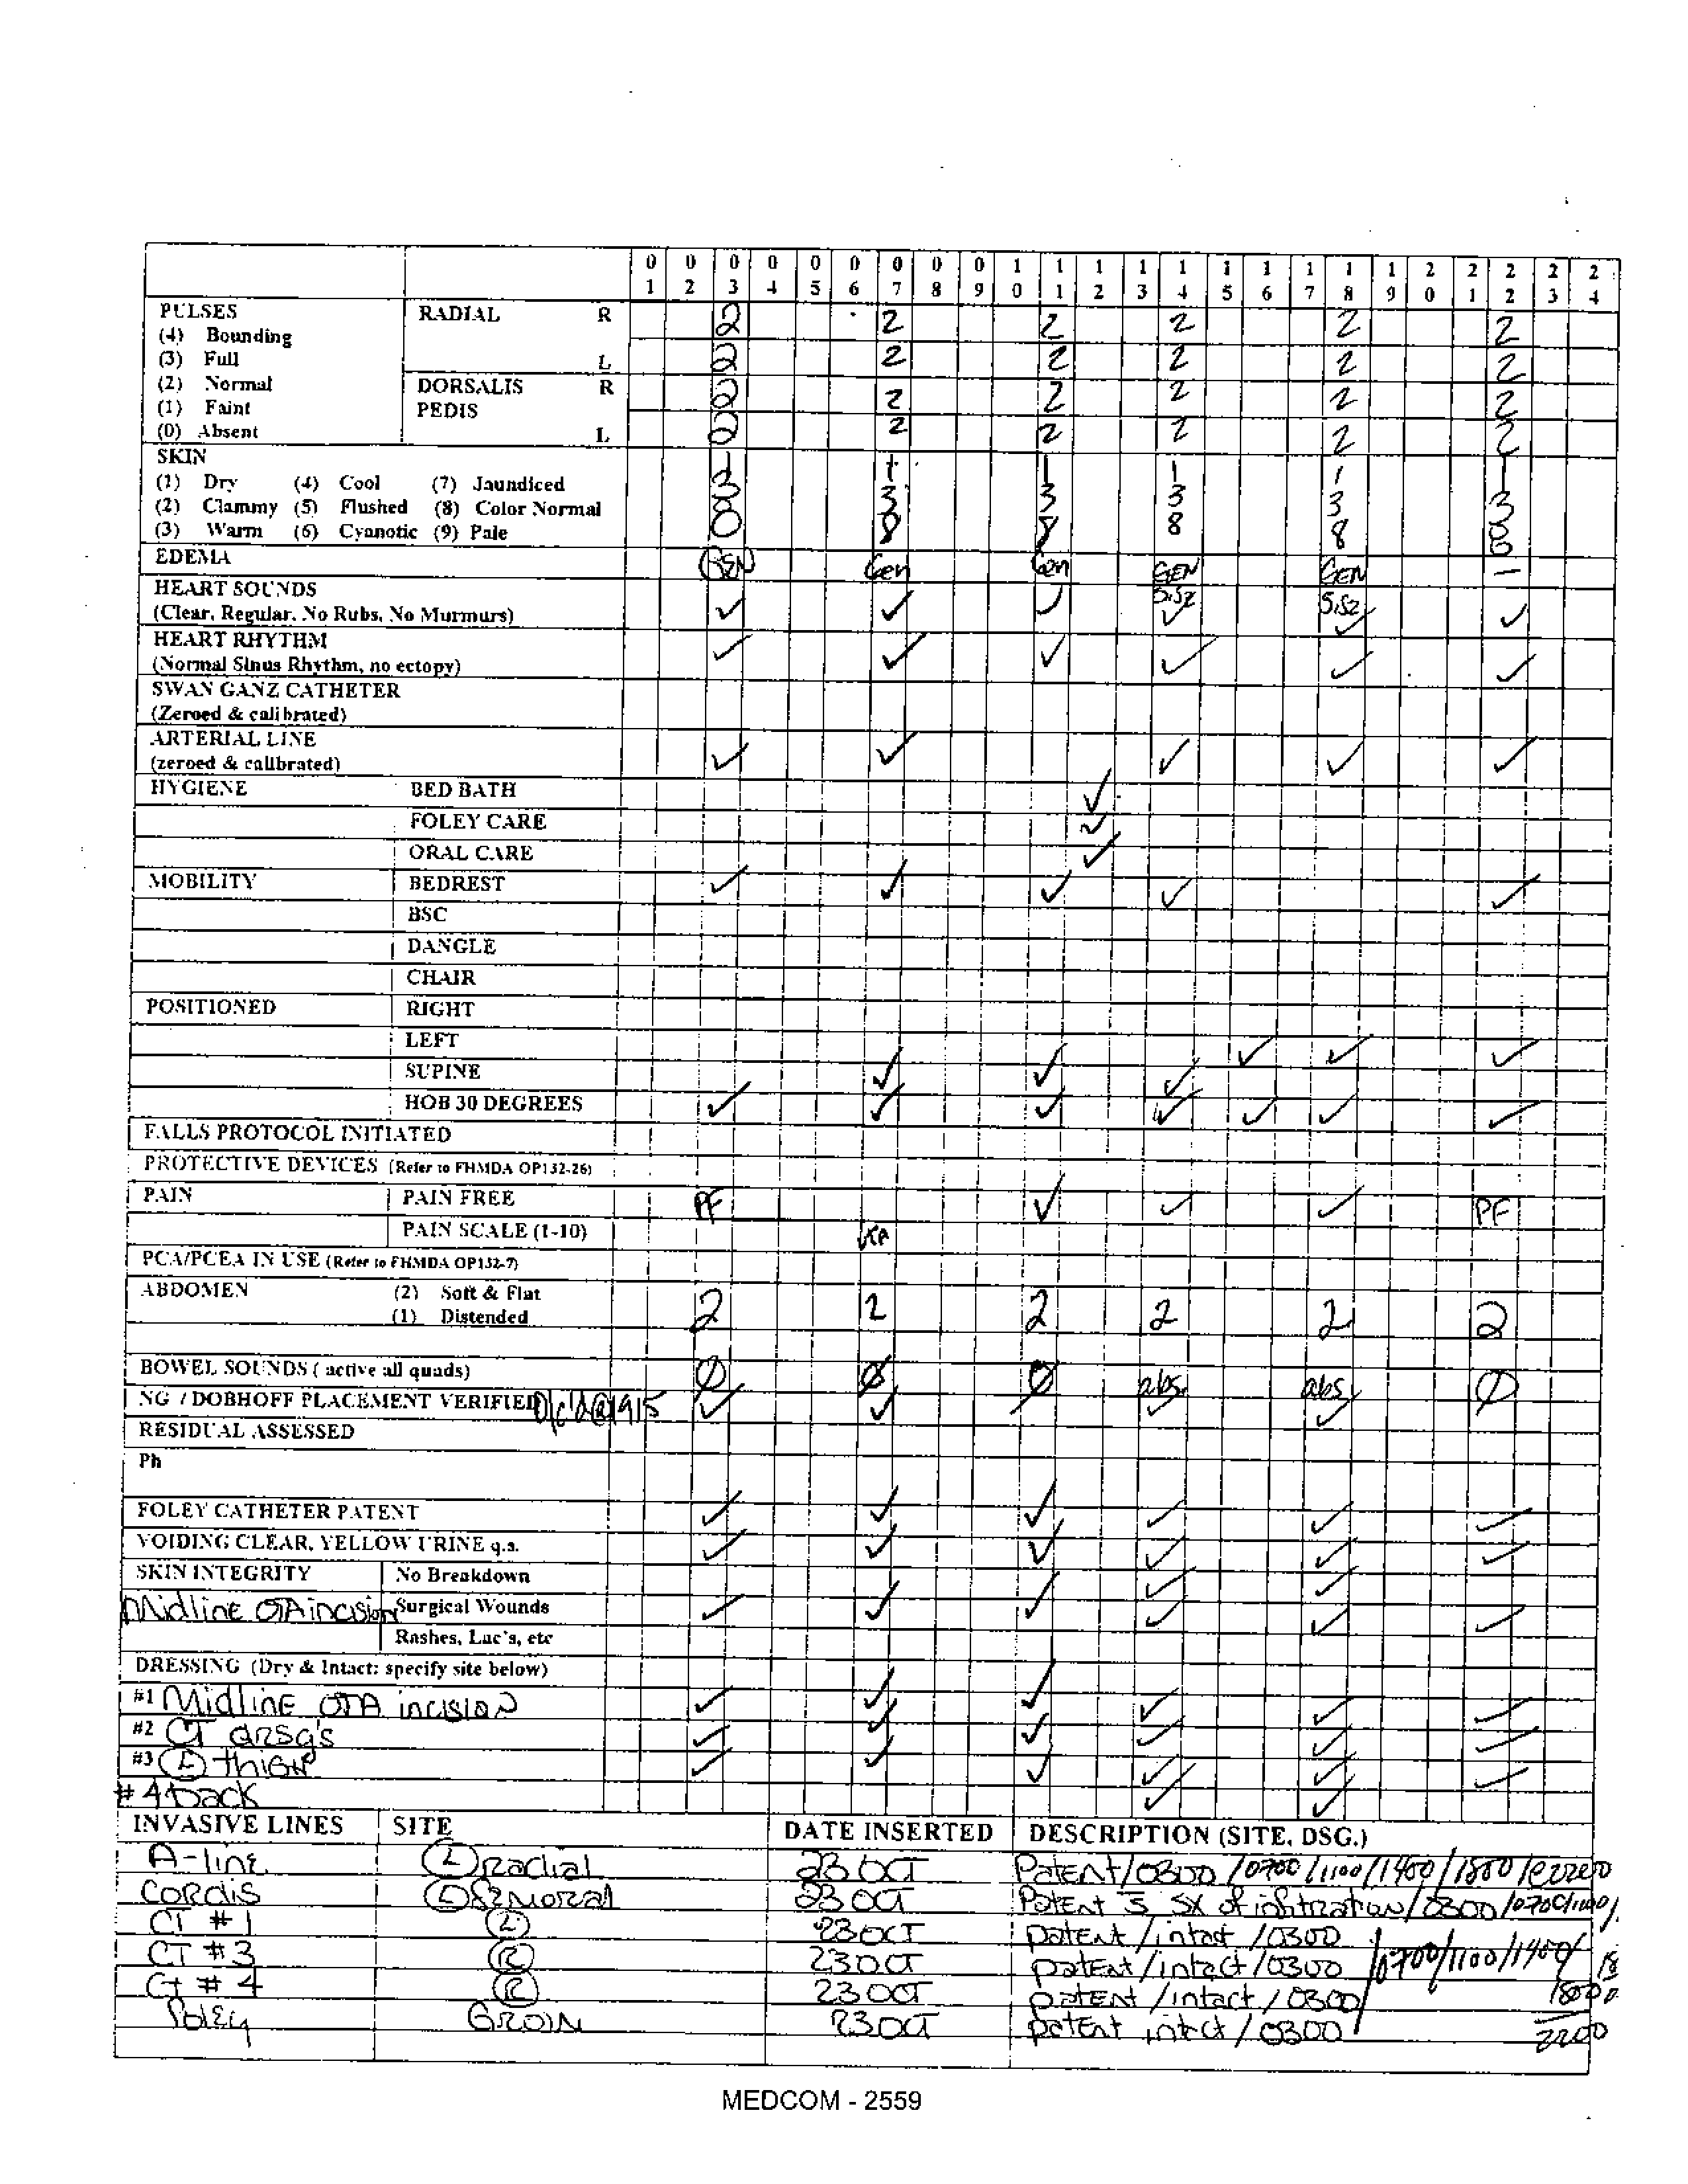 01 02 03 04 05 06 07 08 09 10 11 12 13 14 15 16 17 18 19 20 21 22 23 24
PULSES RADIAL R 2 2 2 2 2 2
(4) Bounding
(3) Full L 2 2 2 2 2 2
(2) Normal DORSALIS R 2 2 2 2 2 2
(1) Faint PEDIS
(0) Absent L 2 2 2 2 2 2
SKIN 1 1 1 1 1 1
(1) Dry (4) Cool (7) Jaundiced 3 3 3 3 3 3
(2) Clammy (5) Flushed (8) Color Normal 8 8 8 8 8 8
(3) Warm (6) Cyanotic (9) Pale
EDEMA GEN Gen Gen GEN GEN –
HEART SOUNDS S1S2 S1S2
(Clear, Regular, No Rubs, No Murmurs) ✓ ✓ ✓ ✓ ✓ ✓
HEART RHYTHM
(Normal Sinus Rhythm, no ectopy) ✓ ✓ ✓ ✓ ✓ ✓
SWAN GANZ CATHETER
(Zeroed & calibrated)
ARTERIAL LINE
(zeroed & calibrated) ✓ ✓ ✓ ✓ ✓
HYGIENE BED BATH ✓
FOLEY CARE ✓
ORAL CARE ✓
MOBILITY BEDREST ✓ ✓ ✓ ✓ ✓
BSC
DANGLE
CHAIR
POSITIONED RIGHT
LEFT ✓ ✓ ✓
SUPINE ✓ ✓ ✓
HOB 30 DEGREES ✓ ✓ ✓ ✓ ✓ ✓ ✓
FALLS PROTOCOL INITIATED
PROTECTIVE DEVICES (Refer to FHMDA OP132-26)
PAIN PAIN FREE PF ✓ ✓ ✓ PF
PAIN SCALE (1-10)
PCA/PCEA IN USE (Refer to FHMDA OP132-7)
ABDOMEN (2) Soft & Flat 2 2 2 2 2 2
(1) Distended
BOWEL SOUNDS ( active all quads) Ø Ø Ø abs abs Ø
NG / DOBHOFF PLACEMENT VERIFIED D/c'd @ 1915 ✓ ✓ ✓ ✓ ✓
RESIDUAL ASSESSED
Ph
FOLEY CATHETER PATENT ✓ ✓ ✓ ✓ ✓ ✓
VOIDING CLEAR, YELLOW URINE q.s. ✓ ✓ ✓ ✓ ✓ ✓
SKIN INTEGRITY No Breakdown ✓ ✓
Midline OTA incision Surgical Wounds ✓ ✓ ✓ ✓ ✓ ✓
Rashes, Lac's, etc
DRESSING (Dry & Intact: specify site below)
#1 Midline OTA incision ✓ ✓ ✓ ✓ ✓ ✓
#2 CT DRSG's ✓ ✓ ✓ ✓ ✓ ✓
#3 (L) thigh ✓ ✓ ✓ ✓ ✓ ✓
#4 back ✓ ✓
INVASIVE LINES SITE DATE INSERTED DESCRIPTION (SITE, DSG.)
A-line (L) Radial 23 OCT Patent/0300/0700/1100/1400/1800/2200
CORDIS (L) Femoral 23 OCT Patent s̄ SX of infiltration/0300/0700/1100/
CT #1 (L) 23 OCT patent/intact/0300
CT #3 (R) 23 OCT patent/intact/0300 /0700/1100/1400/
CT #4 (R) 23 OCT patent/intact/0300 1800
Foley GROIN 23 OCT patent intact/0300 2200
MEDCOM - 2559